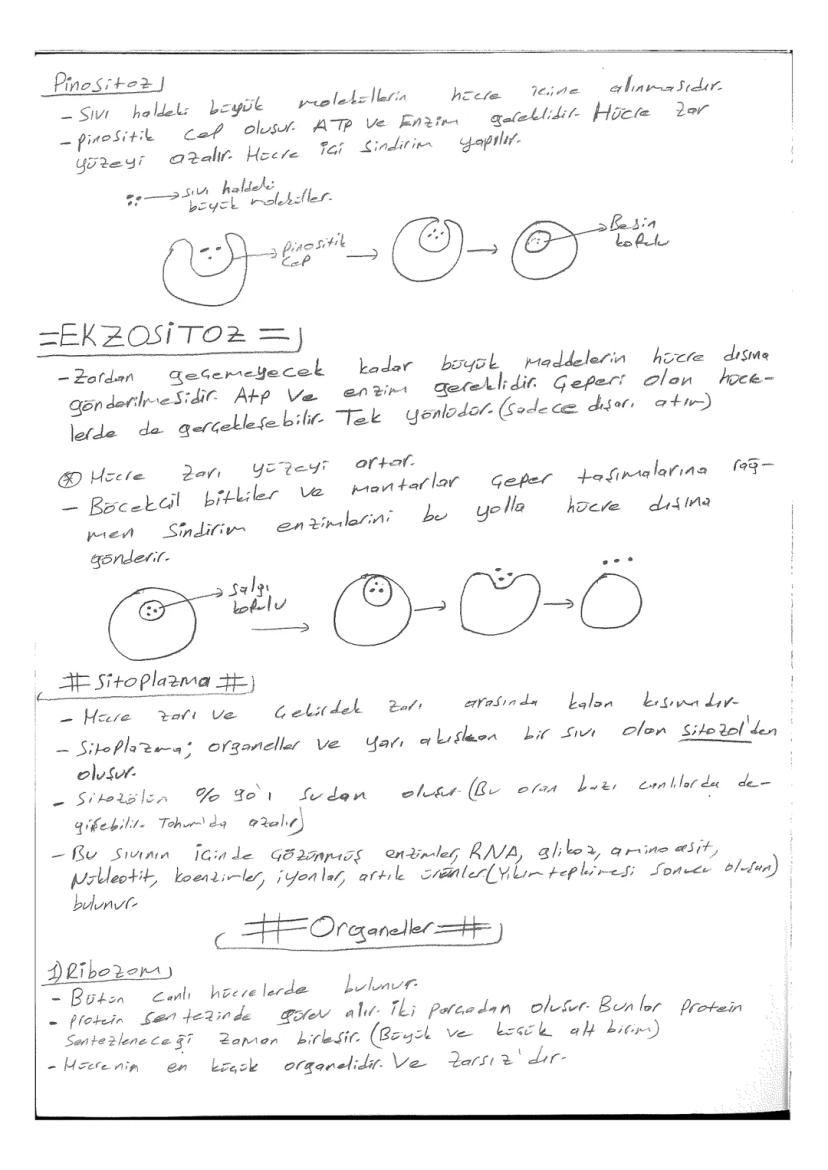 Pinositoz
- Sıvı haldeki büyük moleküllerin hücre içine alınmasıdır.
- Pinositik cep oluşur. ATP ve Enzim gereklidir. Hücre zar
yüzeyi azalır. Hücre içi sindirim yapılır.
→ Sıvı haldeki
büyük moleküller.
→ Pinositik
cep
→ Besin
kofulu
=EKZOSİTOZ=
- Zardan geçemeyecek kadar büyük maddelerin hücre dışına
gönderilmesidir. Atp ve enzim gereklidir. Çeperi olan hücre-
lerde de gerçekleşebilir. Tek yönlüdür. (Sadece dışarı atım)
* Hücre zarı yüzeyi artar.
- Böcekçil bitkiler ve mantarlar çeper taşımalarına rağ-
men sindirim enzimlerini bu yolla hücre dışına
gönderir.
→ Salgı
kofulu
# Sitoplazma #
- Hücre zarı ve Çekirdek zarı arasında kalan kısımdır.
- Sitoplazma; organeller ve yarı akışkan bir sıvı olan sitozol'den
oluşur.
- Sitozolün % 90'ı sudan oluşur. (Bu oran bazı canlılarda de-
ğişebilir. Tohum'da azalır)
- Bu sıvının içinde çözünmüş enzimler, RNA, glikoz, amino asit,
Nükleotit, koenzimler, iyonlar, artık ürünler (Yıkım tepkimesi sonucu oluşan)
bulunur.
# Organeller #
1) Ribozom
- Bütün canlı hücrelerde bulunur.
- Protein sentezinde görev alır. İki parçadan oluşur. Bunlar Protein
Sentezleneceği zaman birleşir. (Büyük ve küçük alt birim)
- Hücrenin en küçük organelidir. Ve Zarsız'dır.